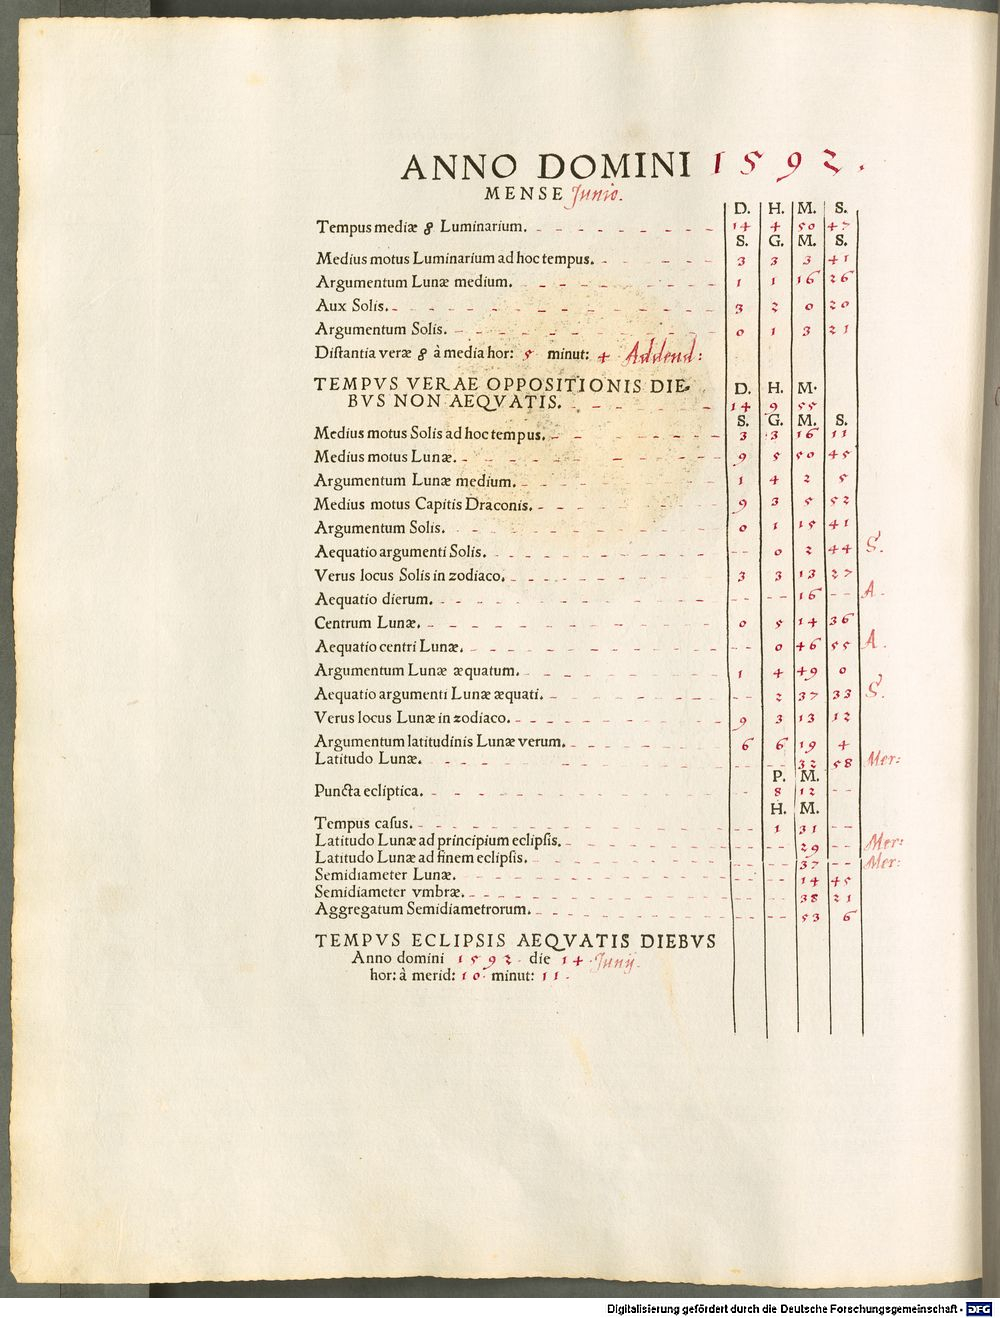 ANNO DOMINI 1592.
MENSE Junio.
D. H. M. S.
Tempus mediæ ☍ Luminarium. 14 4 50 47
S. G. M. S.
Medius motus Luminarium ad hoc tempus. 3 3 3 41
Argumentum Lunæ medium. 1 1 16 26
Aux Solis. 3 2 0 20
Argumentum Solis. 0 1 3 21
Distantia veræ ☍ à media hor: 5 minut: 4 Addend:
TEMPVS VERAE OPPOSITIONIS DIE- D. H. M.
BVS NON AEQVATIS. 14 9 55
S. G. M. S.
Medius motus Solis ad hoc tempus. 3 3 16 11
Medius motus Lunæ. 9 5 50 45
Argumentum Lunæ medium. 1 4 2 5
Medius motus Capitis Draconis. 9 3 5 52
Argumentum Solis. 0 1 15 41
Aequatio argumenti Solis. -- 0 2 44 S.
Verus locus Solis in zodiaco. 3 3 13 27
Aequatio dierum. -- -- 16 -- A.
Centrum Lunæ. 0 5 14 36
Aequatio centri Lunæ. -- 0 46 55 A.
Argumentum Lunæ æquatum. 1 4 49 0
Aequatio argumenti Lunæ æquati. -- 2 37 33 S.
Verus locus Lunæ in zodiaco. 9 3 13 12
Argumentum latitudinis Lunæ verum. 6 6 19 4
Latitudo Lunæ. -- -- 32 58 Mer:
P. M.
Puncta ecliptica. 8 12 --
H. M.
Tempus casus. 1 31 --
Latitudo Lunæ ad principium eclipsis. -- -- 29 -- Mer:
Latitudo Lunæ ad finem eclipsis. -- -- 37 -- Mer:
Semidiameter Lunæ. -- -- 14 45
Semidiameter vmbræ. -- -- 38 21
Aggregatum Semidiametrorum. -- -- 53 6
TEMPVS ECLIPSIS AEQVATIS DIEBVS
Anno domini 1592. die 14 Junij.
hor: à merid: 10. minut: 11.
Digitalisierung gefördert durch die Deutsche Forschungsgemeinschaft - DFG